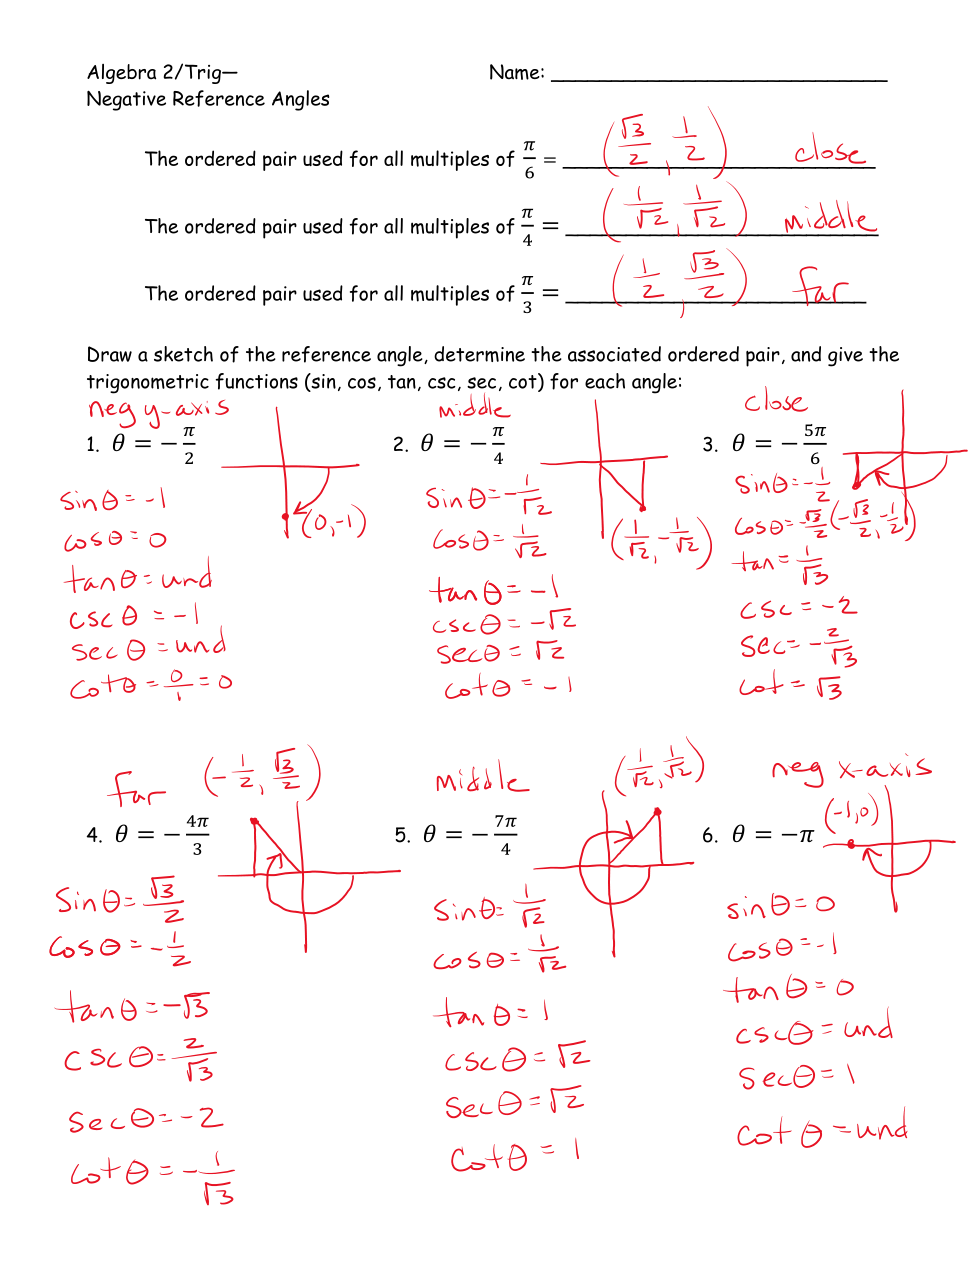 Algebra 2/Trig— Name: ______________________________
Negative Reference Angles
The ordered pair used for all multiples of π/6 = (√3/2, 1/2) close
The ordered pair used for all multiples of π/4 = (1/√2, 1/√2) middle
The ordered pair used for all multiples of π/3 = (1/2, √3/2) far
Draw a sketch of the reference angle, determine the associated ordered pair, and give the
trigonometric functions (sin, cos, tan, csc, sec, cot) for each angle:
neg y-axis
1. θ = −π/2
(0,-1)
sinθ = -1
cosθ = 0
tanθ = und
cscθ = -1
secθ = und
cotθ = 0/1 = 0
middle
2. θ = −π/4
(1/√2, -1/√2)
sinθ = -1/√2
cosθ = 1/√2
tanθ = -1
cscθ = -√2
secθ = √2
cotθ = -1
close
3. θ = −5π/6
sinθ = -1/2
cosθ = -√3/2 (-√3/2, -1/2)
tan = 1/√3
csc = -2
sec = -2/√3
cot = √3
far (-1/2, √3/2)
4. θ = −4π/3
sinθ = √3/2
cosθ = -1/2
tanθ = -√3
cscθ = 2/√3
secθ = -2
cotθ = -1/√3
middle (1/√2, 1/√2)
5. θ = −7π/4
sinθ = 1/√2
cosθ = 1/√2
tanθ = 1
cscθ = √2
secθ = √2
cotθ = 1
neg x-axis
(-1,0)
6. θ = −π
sinθ = 0
cosθ = -1
tanθ = 0
cscθ = und
secθ = 1
cotθ = und